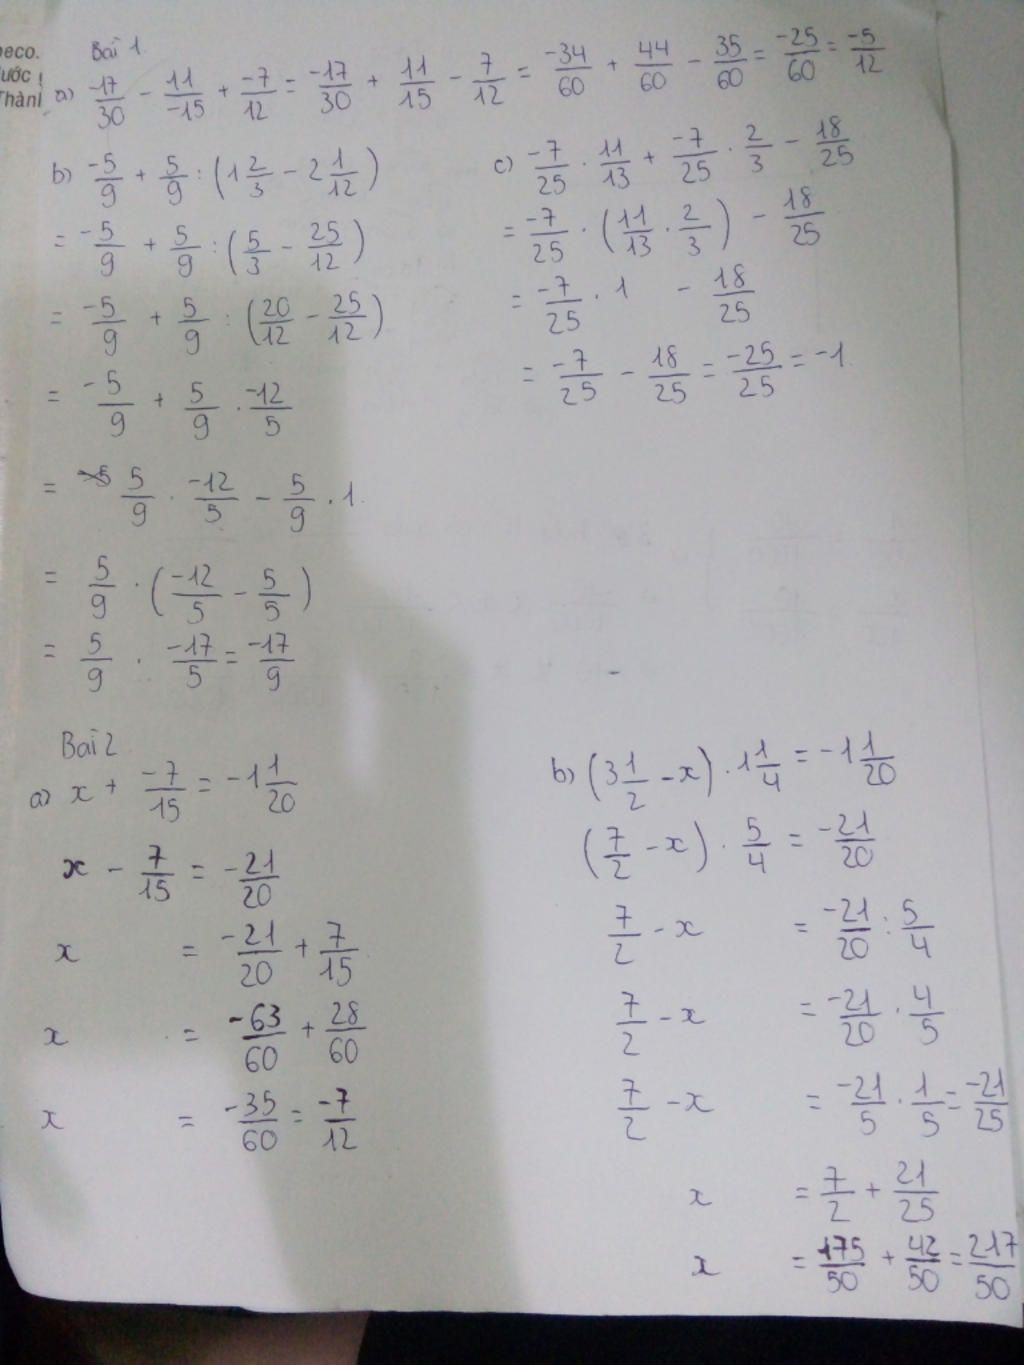 peco.
ước
Thành
Bài 1
a) -17/30 - 11/-15 + -7/12 = -17/30 + 11/15 - 7/12 = -34/60 + 44/60 - 35/60 = -25/60 = -5/12
b) -5/9 + 5/9 : (1 2/3 - 2 1/12)
= -5/9 + 5/9 : (5/3 - 25/12)
= -5/9 + 5/9 : (20/12 - 25/12)
= -5/9 + 5/9 . -12/5
= 5/9 . -12/5 - 5/9 . 1
= 5/9 . (-12/5 - 5/5)
= 5/9 . -17/5 = -17/9
c) -7/25 . 11/13 + -7/25 . 2/3 - 18/25
= -7/25 . (11/13 . 2/3) - 18/25
= -7/25 . 1 - 18/25
= -7/25 - 18/25 = -25/25 = -1
Bài 2
a) x + -7/15 = -1 1/20
x - 7/15 = -21/20
x = -21/20 + 7/15
x = -63/60 + 28/60
x = -35/60 = -7/12
b) (3 1/2 - x) . 1 1/4 = -1 1/20
(7/2 - x) . 5/4 = -21/20
7/2 - x = -21/20 : 5/4
7/2 - x = -21/20 . 4/5
7/2 - x = -21/5 . 1/5 = -21/25
x = 7/2 + 21/25
x = 175/50 + 42/50 = 217/50